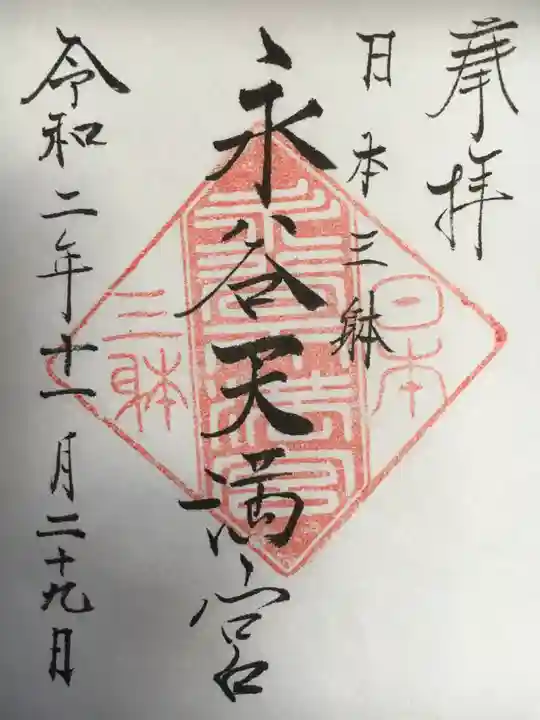 奉拝
日本三躰
永谷天満宮
令和二年十一月二十九日
日本
三躰